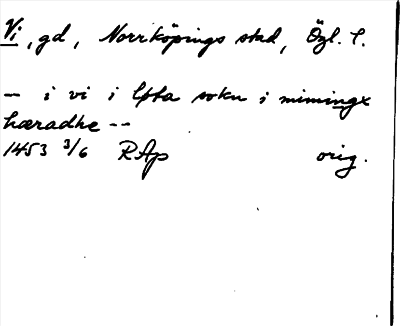 Vi, gd, Norrköpings stad, Özl. l.
-- i vi i lysta sokn i mimingx
hæradhe --
1453 3/6 RAp orig.